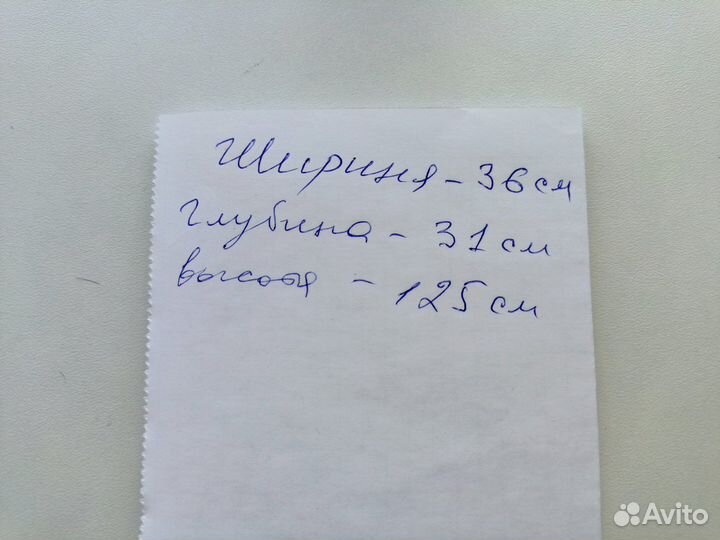 Ширина - 36 см
глубина - 31 см
высота - 125 см
Avito